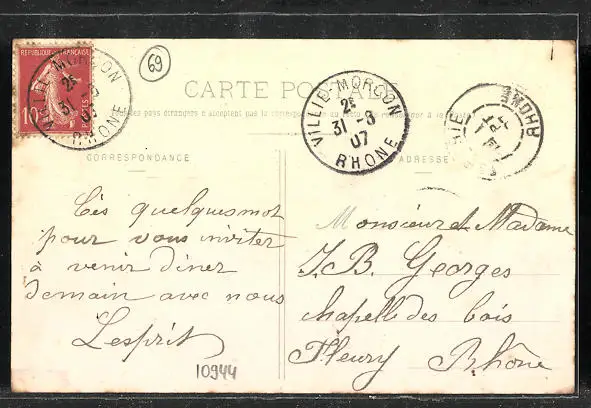 REPUBLIQUE FRANÇAISE
10
POSTES
VILLIE-MORGON
2E
31 -8
07
RHONE
69
CARTE POSTALE
Tous les pays étrangers n'acceptent pas la correspondance au
VILLIE-MORGON
2E
31 -8
07
RHONE
RHONE
CORRESPONDANCE
ADRESSE
Cès quelques mot
pour vous inviter
à venir diner
demain avec nous
Lesprit
10944
Monsieur et Madame
J.B. Georges
chapelle des bois
Fleury Rhône